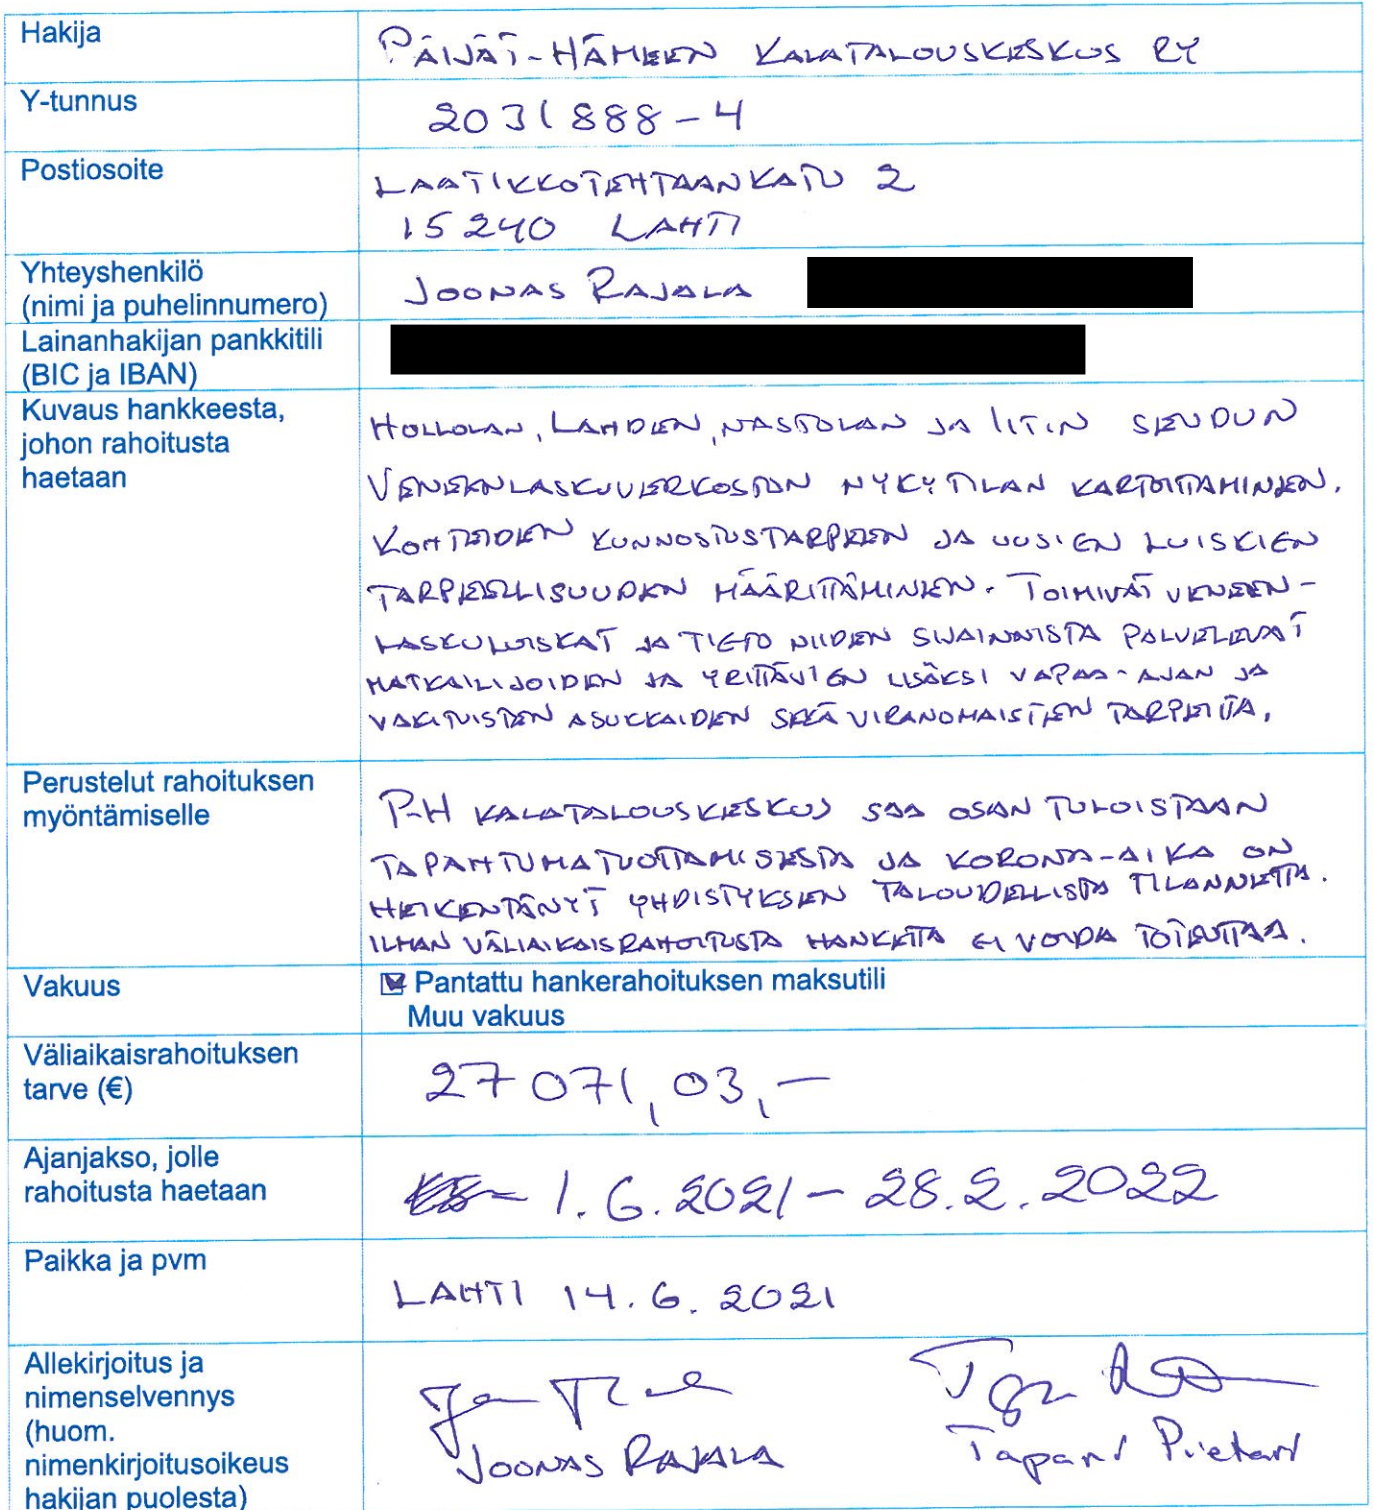 Hakija
PÄIJÄT-HÄMEEN KALATALOUSKESKUS RY
Y-tunnus
2031888-4
Postiosoite
LAATIKKOTEHTAANKATU 2
15240 LAHTI
Yhteyshenkilö
(nimi ja puhelinnumero)
JOONAS RAJALA
Lainanhakijan pankkitili
(BIC ja IBAN)
Kuvaus hankkeesta,
johon rahoitusta
haetaan
HOLLOLAN, LAHDEN, NASTOLAN JA IITIN SEUDUN
VENEENLASKUVERKOSTON NYKYTILAN KARTOITTAMINEN.
KOHTEIDEN KUNNOSTUSTARPEEN JA UUSIEN LUISKIEN
TARPEELLISUUDEN MÄÄRITTÄMINEN. TOIMIVAT VENEEN-
LASKULUISKAT JA TIETO NIIDEN SIJAINNISTA PALVELEVAT
MATKAILIJOIDEN JA YRITTÄVIEN LISÄKSI VAPAA-AJAN JA
VAKITUISTEN ASUKKAIDEN SEKÄ VIRANOMAISTEN TARPEITA.
Perustelut rahoituksen
myöntämiselle
P-H KALATALOUSKESKUS SAA OSAN TULOISTAAN
TAPAHTUMATUOTTAMISESTA JA KORONA-AIKA ON
HEIKENTÄNYT YHDISTYKSEN TALOUDELLISTA TILANNETTA.
ILMAN VÄLIAIKAISRAHOITUSTA HANKETTA EI VOIDA TOTEUTTAA.
Vakuus
Pantattu hankerahoituksen maksutili
Muu vakuus
Väliaikaisrahoituksen
tarve (€)
27 071,03,-
Ajanjakso, jolle
rahoitusta haetaan
1.6.2021 - 28.2.2022
Paikka ja pvm
LAHTI 14.6.2021
Allekirjoitus ja
nimenselvennys
(huom.
nimenkirjoitusoikeus
hakijan puolesta)
JOONAS RAJALA
Tapani Pietari